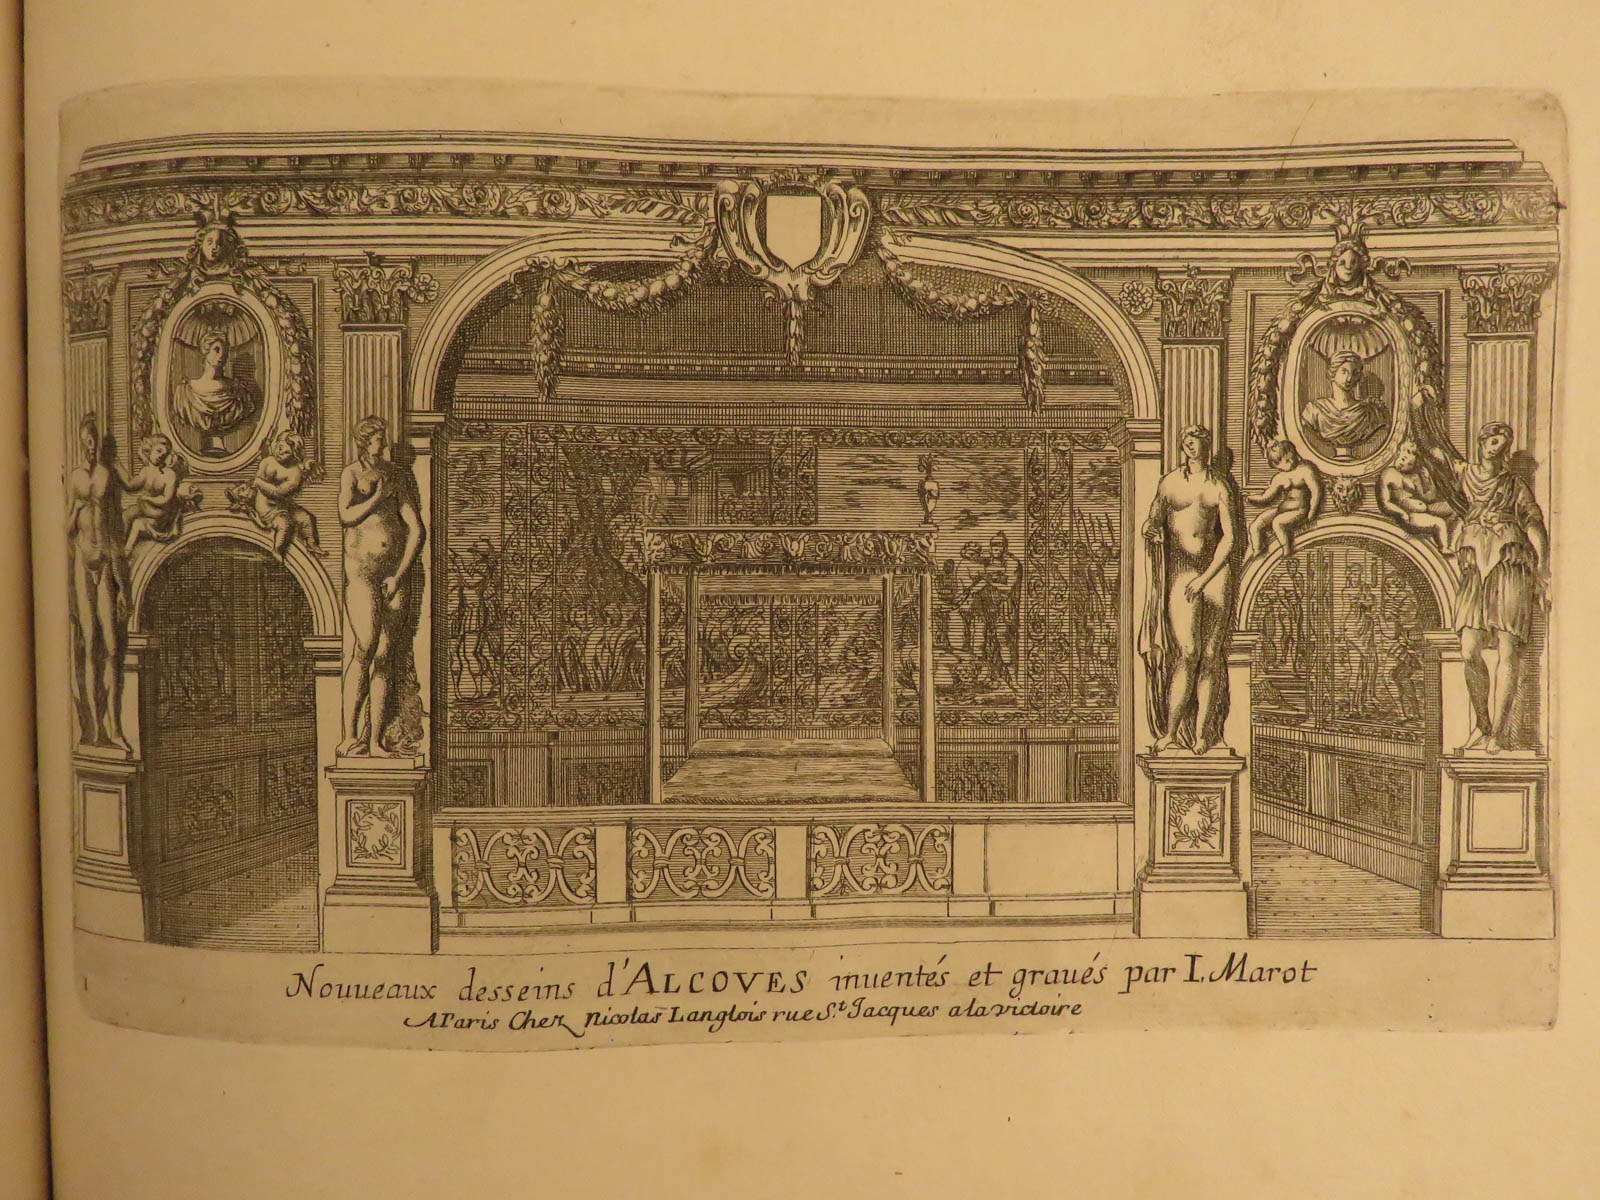 Nouueaux desseins d'ALCOVES inuentés et graués par I. Marot
A Paris Chez Nicolas Langlois rue S.t Jacques a la victoire
1